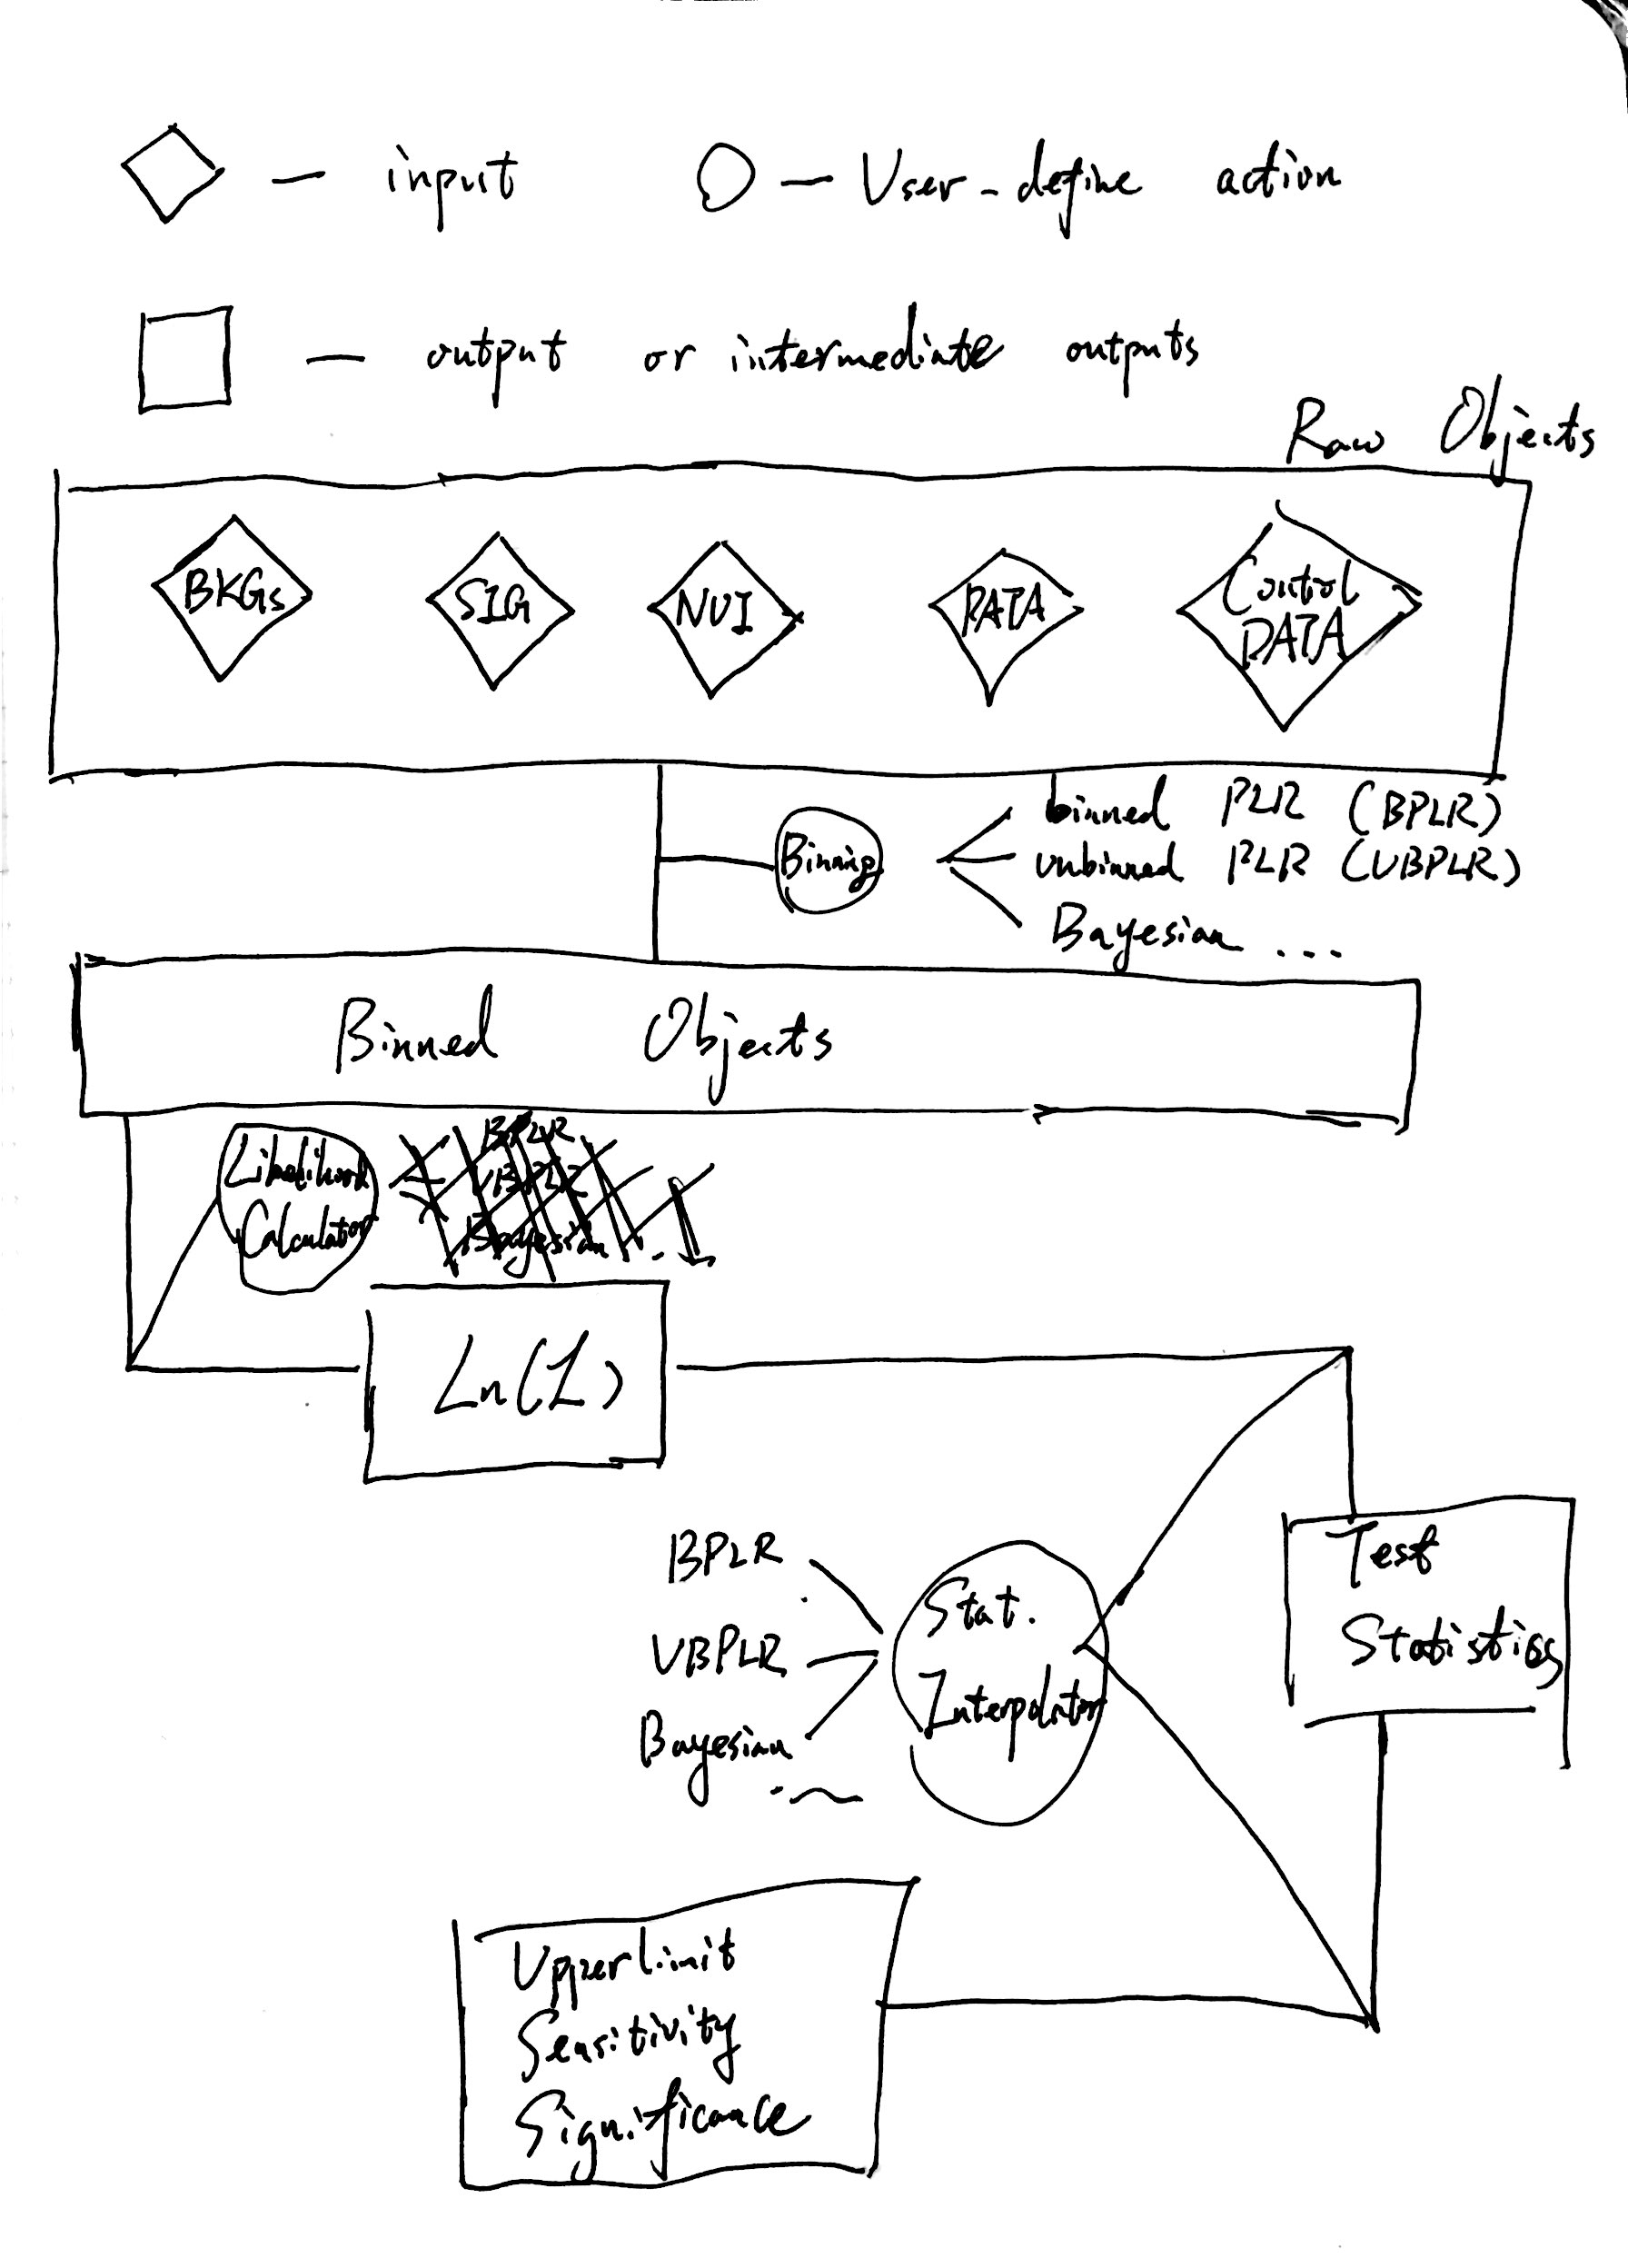 input
User-define action
output or intermediate outputs
Raw Objects
BKGs
SIG
NUI
DATA
Control
DATA
Binning
binned PLR (BPLR)
unbinned PLR (UBPLR)
Bayesian ...
Binned Objects
Likelihood
Calculator
BPLR
UBPLR
Bayesian
Ln(L)
BPLR
UBPLR
Bayesian
Stat.
Interpolator
Test
Statistics
Upperlimit
Sensitivity
Significance